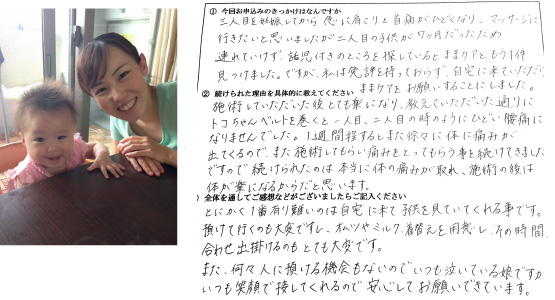 ① 今回お申込みのきっかけはなんですか
二人目を妊娠してから急に肩こりと首痛がひどくなり、マッサージに
行きたいと思いましたが二人目の子供が9ヶ月だったため
連れていけず、託児付きのところを探しているとままケアともう1件
見つけました。ですが、私は免許を持っておらず、自宅に来ていただける
ままケアをお願いすることにしました。
② 続けられた理由を具体的に教えてください
施術していただいた後とても楽になり、教えていただいた通りに
トコちゃんベルトを巻くと一人目、二人目の時のようにひどい腰痛に
なりませんでした。1週間程するとまた徐々に体に痛みが
出てくるので、また施術してもらい痛みをとってもらう事を続けてきました
ですので続けられたのは本当に体の痛みが取れ、施術の後は
体が楽になるからだと思います。
全体を通してご感想などがございましたらご記入ください
とにかく1番有り難いのは自宅に来て子供を見ていてくれる事です。
預けて行くのも大変ですし、オムツやミルク、着替えを用意し、その時間に
合わせ出掛けるのもとても大変です。
また、何々人に預ける機会もないのでいつも泣いている娘ですが
いつも笑顔で接してくれるので安心してお願いできています。